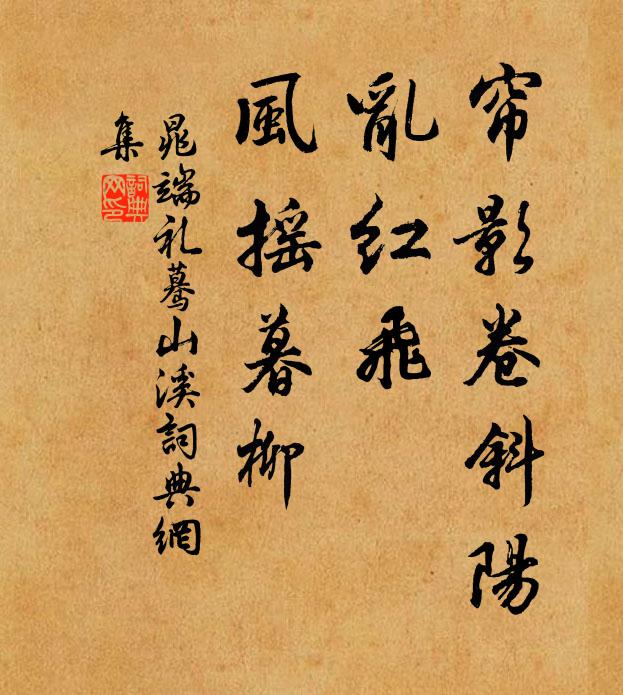 帘影卷斜陽
亂紅飛
風摇暮柳
晁端礼蓦山溪詞典網
集
詞典
网印